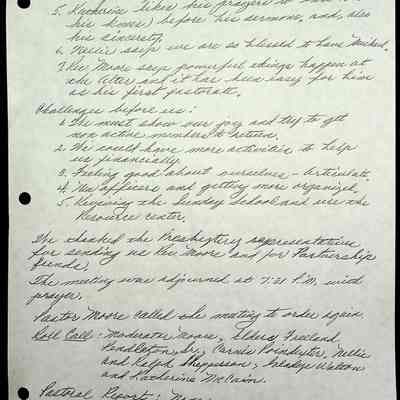 5. Katherine likes his prayers
his knees) before his sermons, and, also
his sincerity.
6. Nellie says we are so blessed to have
7. Rev Moore says powerful things happen at
the Alter and it has been easy for him
as his first pastorate.
Challenges before us:
1. We must show our joy and try to get
non active members to return.
2. We could have more activities to help
us financially.
3. Feeling good about ourselves - Articulate.
4. New officers and getting more organized.
5. Reviving the Sunday School and use the
Resource Center.
We thanked the Presbytery representative
for sending us Rev Moore and for Partnership
funds.
The meeting was adjourned at 7:21 P.M. with
prayer.
Pastor Moore called the meeting to order again.
Roll Call: Moderator Moore, Elders Freeland
Pendleton, Sr., Carrie Poindexter, Nellie
and Ralph Shepperson, Gladys Watson
and Katherine McCain.
Pastoral Report: